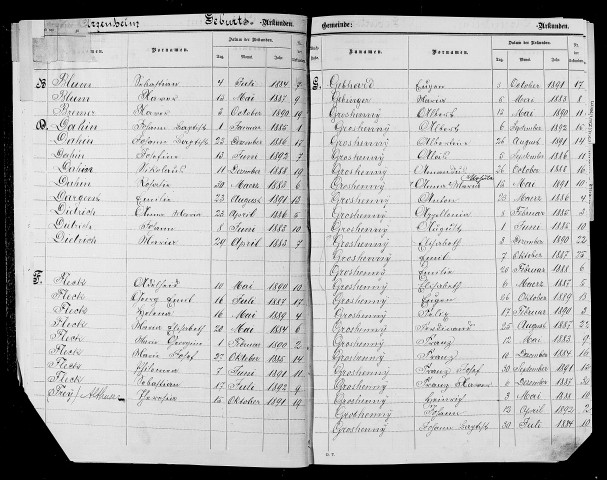 Arzenheim Geburts-Urkunden.
Namen. Vornamen. Datum der Urkunden. Tag. Monat. Jahr.
B Blum Sebastian 4 Juli 1884 7
Blum Xaver 13 Mai 1887 9
Xaver 3 October 1890 19
D. Dahin Johann Baptist 1 Januar 1885 1
Dahin Johann Baptist 22 December 1886 17
Dahin Josefine 13 Juni 1892 7
Dahin Nikolaus 11 December 1888 19
Dahin Rosalie 30 Maerz 1883 6
Emilie 23 August 1891 13
Dietrich Anna Maria 23 April 1886 5
Dietrich Johann 8 Juni 1883 10
Dietrich Maria 29 April 1883 7
F Fleck Adelheid 10 Mai 1890 10
Fleck Georg Emil 16 Juli 1887 17
Fleck Helena 16 Mai 1889 4
Fleck Maria Elisabeth 20 Mai 1884 6
Fleck Marie 1 Februar 1800 2
Fleck Marie Josef 27 Oktober 1885 14
Fleck Philomena 7 Juni 1891 11
Fleck Sebastian 17 Juli 1892 9
Frey Theresia 15 Oktober 1891 19
Gemeinde: Urkunden.
Namen. Vornamen. Datum der Urkunden. Tag. Monat. Jahr.
G. Gebhard Eugen 3 October 1891 17
Maria 6 Mai 1883 8
Groshenny Albert 13 Mai 1890 11
Groshenny Albert 6 September 1892 15
Groshenny Albertine 25 August 1891 14
Groshenny Alois 5 September 1886 11
Groshenny Amandus 26 October 1888 16
Groshenny Anna Maria 15 Mai 1891 10
Groshenny Anton 20 Maerz 1886 4
Groshenny Appollonia 1 Februar 1885 2
Groshenny August 1 Juni 1886 10
Groshenny Elisabeth 3 November 1890 22
Groshenny Emil 7 Oktober 1887 25
Groshenny Emilie 20 Februar 1888 6
Groshenny Elisabeth 6 Maerz 1885 5
Groshenny Eugen 26 Oktober 1889 13
Groshenny Felix 17 Februar 1890 3
Groshenny Ferdinand 25 August 1887 22
Groshenny Franz 12 Mai 1883 9
Groshenny Franz 10 December 1884 16
Groshenny Franz Josef 30 September 1891 15
Groshenny Franz Xaver 6 December 1887 21
Groshenny Heinrich 3 Mai 1888 10
Groshenny Johann 12 April 1892 2
Groshenny Johann Baptist 30 Juli 1884 10
D. 7.